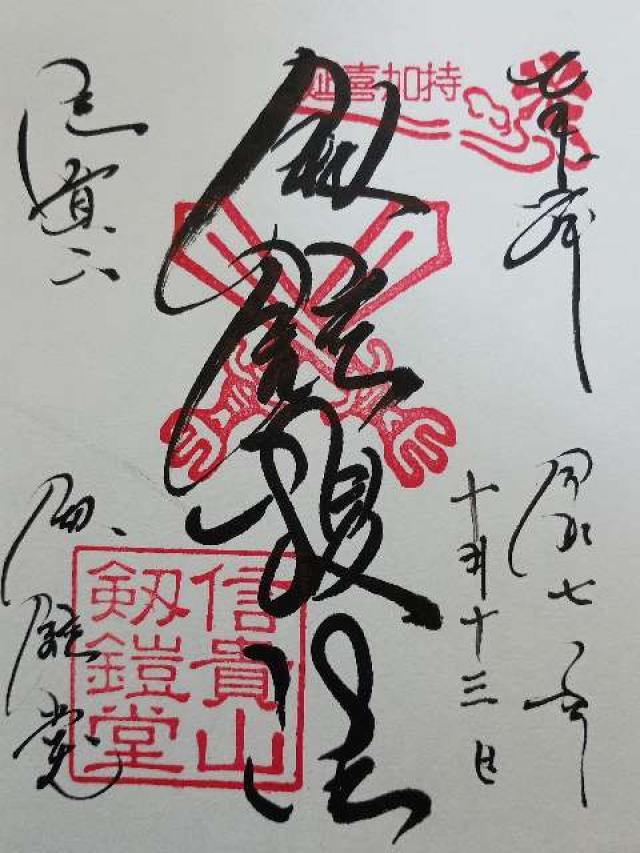 奉拝
令和七年
十月十三日
延喜加持
剱鎧護法
信貴山
劔鎧堂
信貴山
剱鎧堂